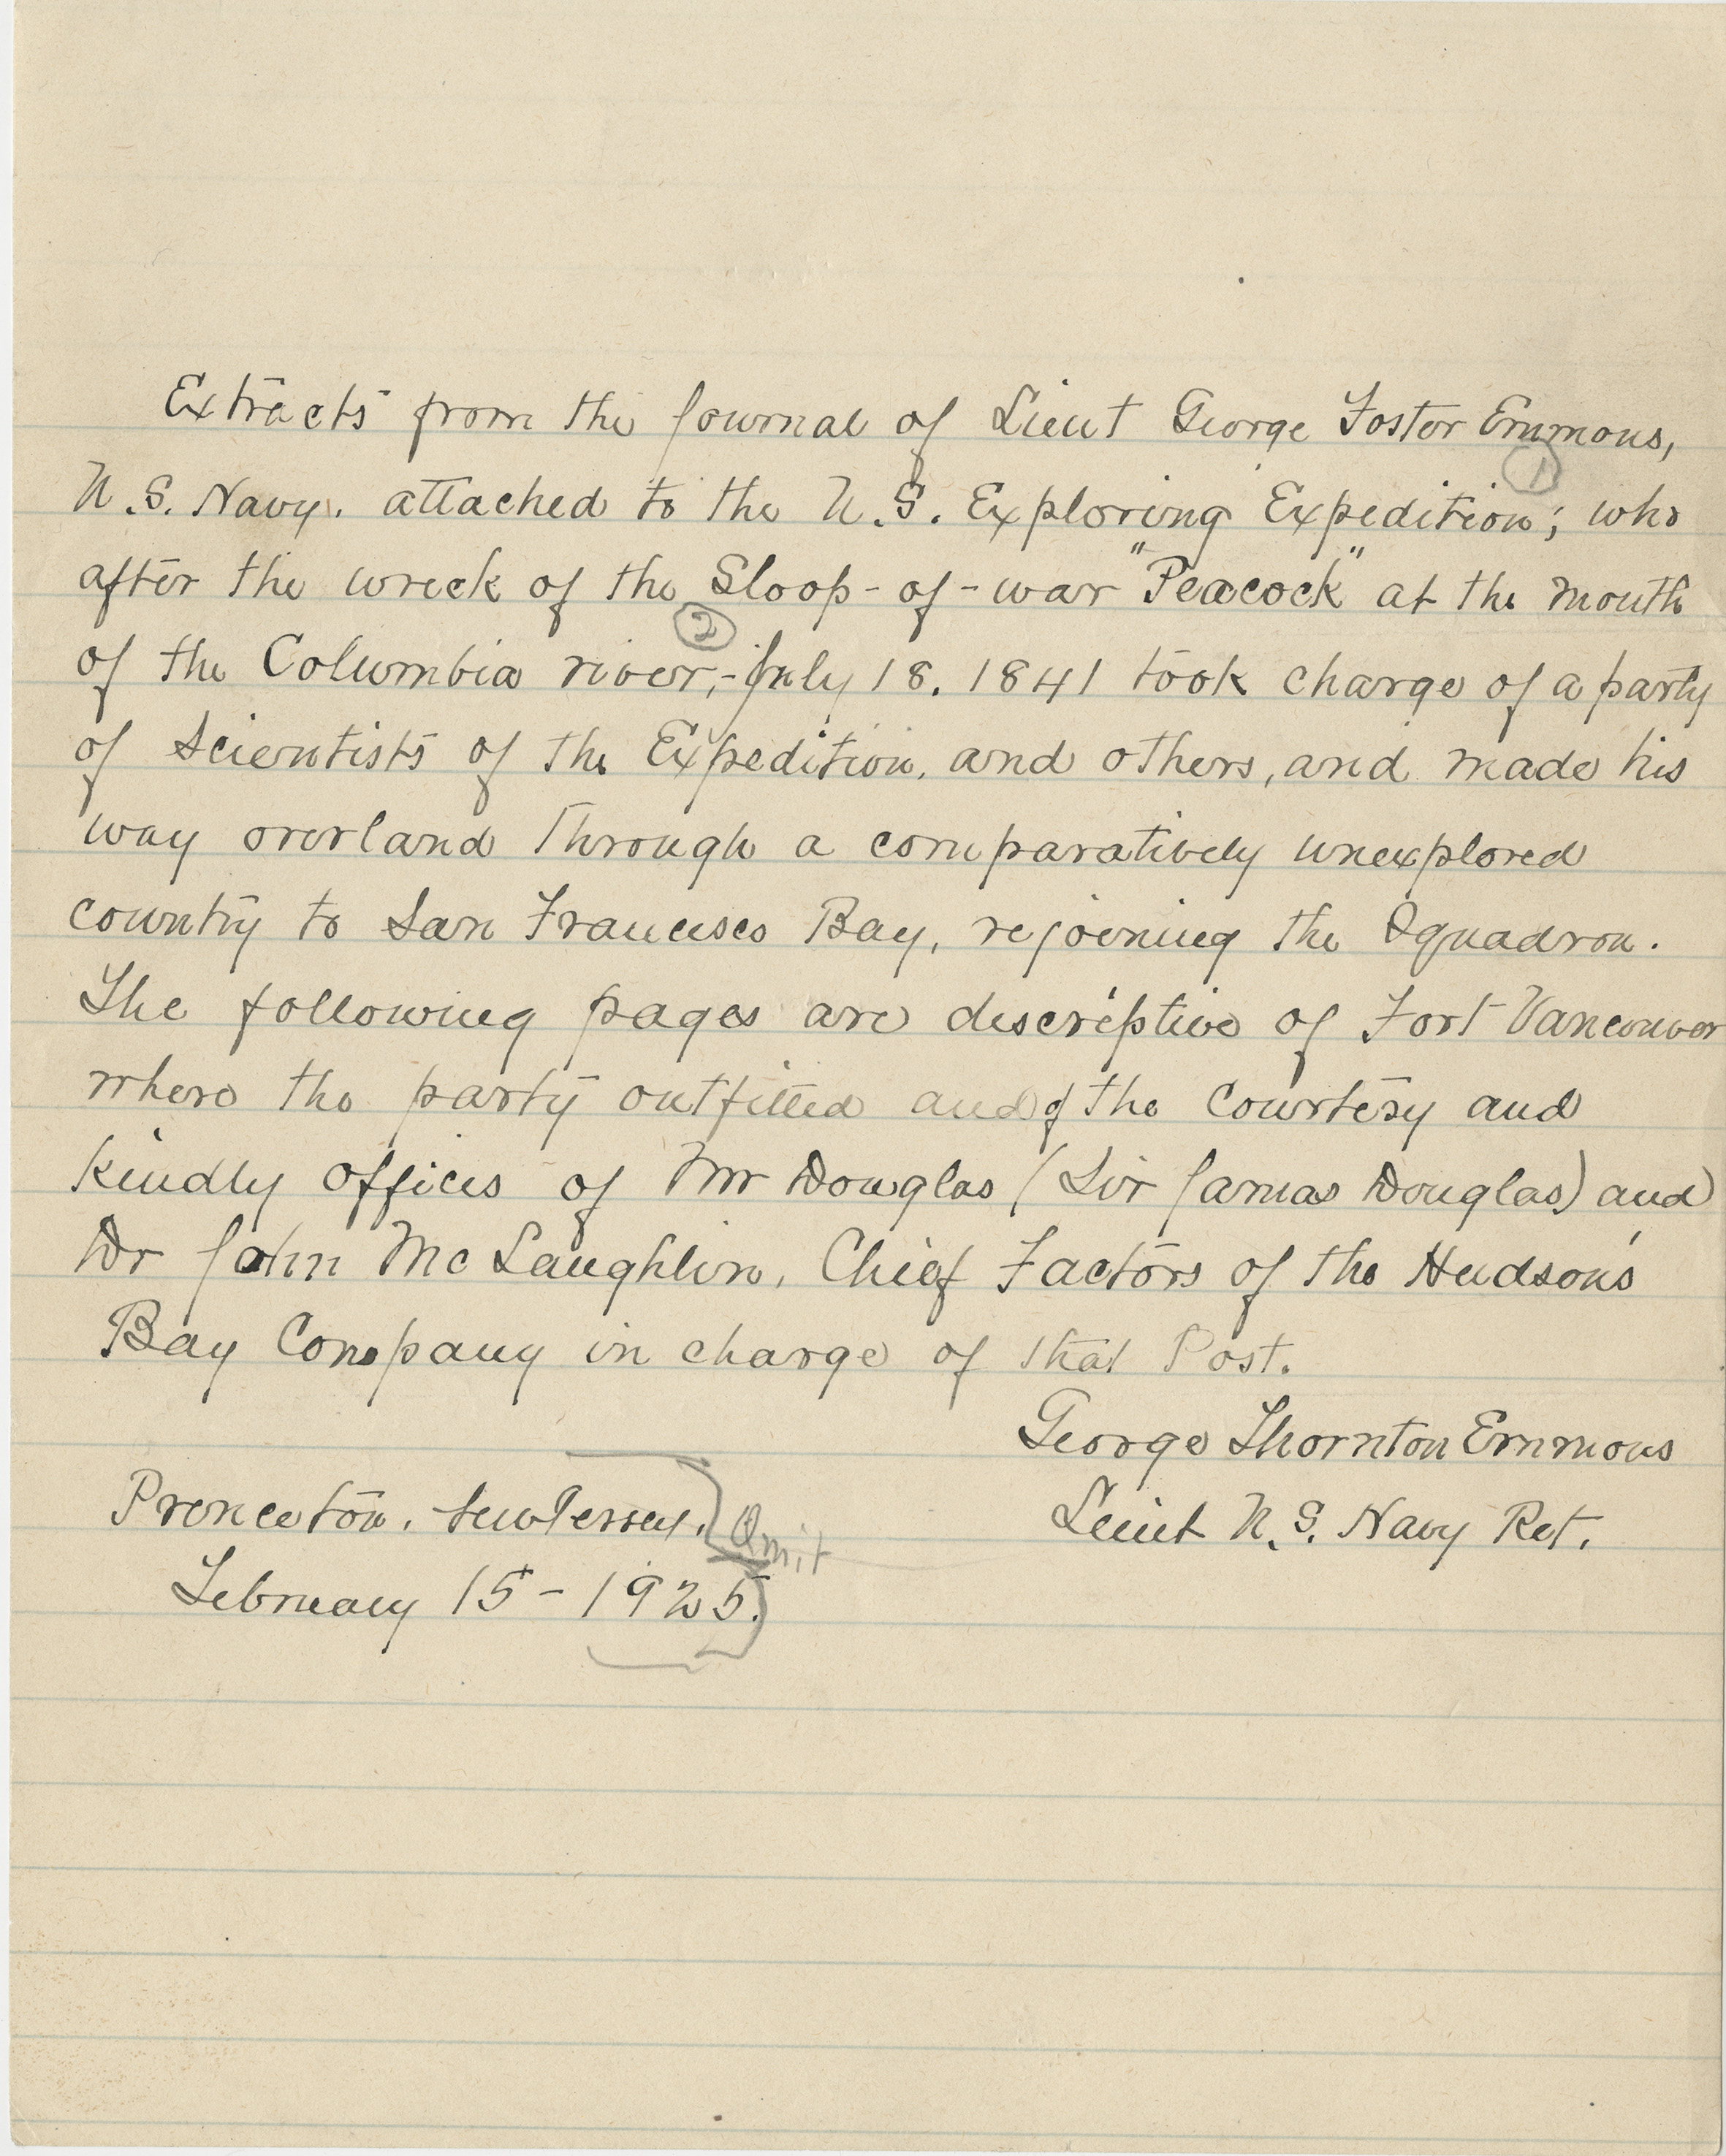 Extracts from the Journal of Lieut George Foster Emmons,
①
U.S. Navy. attached to the U.S. Exploring Expedition; who
after the wreck of the Sloop-of-war "Peacock" at the mouth
②
of the Columbia river,-July 18. 1841 took charge of a party
of Scientists of the Expedition, and others, and made his
way overland through a comparatively unexplored
country to San Francisco Bay, rejoining the Squadron.
The following pages are descriptive of Fort Vancouver
where the party outfitted and of the courtesy and
kindly offices of Mr Douglas (Sir James Douglas) and
Dr John McLaughlin, Chief Factors of the Hudson's
Bay Company in charge of that Post.
George Thornton Emmons
Lieut U.S. Navy Ret.
Princeton. New Jersey.
Omit
February 15-1925.